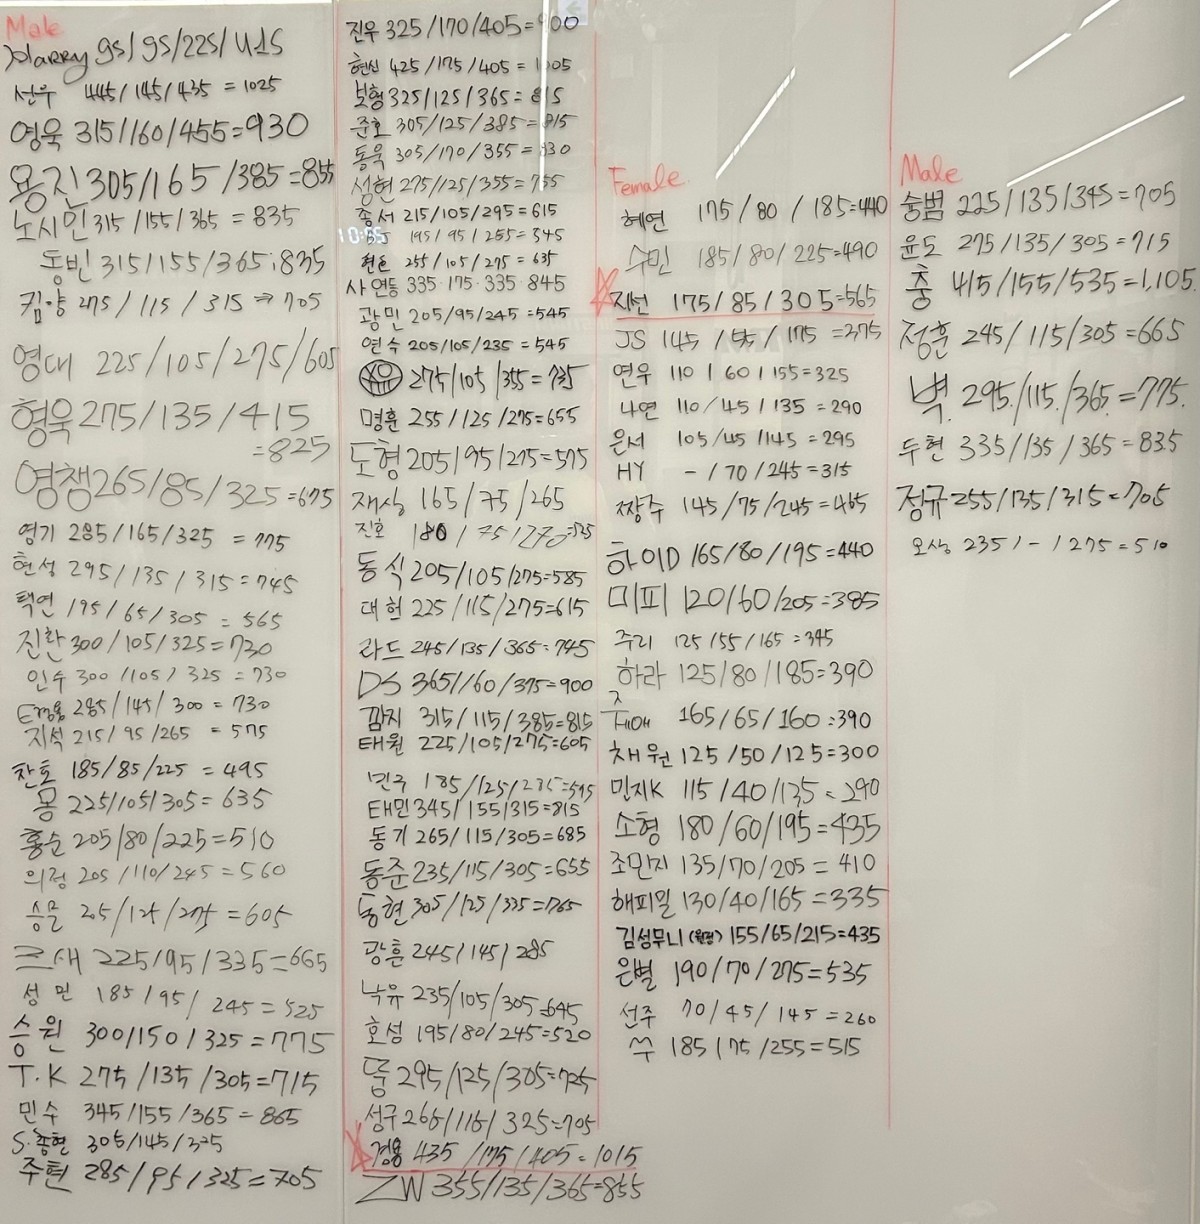 Male
Harry 95/95/225/415
선우 445/145/435 = 1025
영욱 315/160/455=930
용진 305/165/385=855
노시민 315/155/365 = 835
동빈 315/155/365=835
킴양 275/115/315 ⇒ 705
영대 225/105/275/605
형욱 275/135/415
=825
영쟁 265/85/325=675
영기 285/165/325 = 775
현성 295/135/315=745
택연 195/65/305 = 565
진환 300/105/325=730
인수 300/105/325=730
285/145/300=730
지석 215/95/265 = 575
찬호 185/85/225 = 495
몽 225/105/305=635
홍순 205/80/225=510
의정 205/110/245=560
승문 205/125/275=605
르새 225/95/335=665
성민 185/95/245=525
승원 300/150/325=775
T.K 275/135/305=715
민수 345/155/365=865
S.종현 305/145/325
주현 285/95/325=705
진우 325/170/405=900
현신 425/175/405=1005
보형 325/125/365=815
준호 305/125/385=815
동욱 305/170/355=830
성현 275/125/355=755
종서 215/105/295=615
195/95/255=545
255/105/275=635
사연등 335·175·335·845
광민 205/95/245=545
연수 205/105/235=545
275/105/355=735
명훈 255/125/275=655
도형 205/95/275=575
재상 165/75/265
진호 180/75/270=525
동식 205/105/275=585
대헌 225/115/275=615
라드 245/135/365=745
DS 365/160/375=900
깜지 315/115/385=815
태원 225/105/275=605
민구 185/125/285=595
태민 345/155/315=815
동기 265/115/305=685
동준 235/115/305=655
동현 305/125/335=765
광훈 245/145/285
낙유 235/105/305=645
호섬 195/80/245=520
뚱 295/125/305=725
성구 265/115/325=705
경용 435/175/405=1015
ZW 355/135/365=855
Female
혜연 175/80/185=440
수민 185/80/225=490
지선 175/85/305=565
JS 145/55/175=375
연우 110/60/155=325
나연 110/45/135=290
은서 105/45/145=295
HY -/70/245=315
짱주 145/75/245=465
하이D 165/80/195=440
미피 120/60/205=385
주리 125/55/165=345
하라 125/80/185=390
165/65/160=390
채원 125/50/125=300
민지K 115/40/135=290
소형 180/60/195=435
조민지 135/70/205=410
해피밀 130/40/165=335
김성무니 155/65/215=435
은별 190/70/275=535
선주 70/45/145=260
쑤 185/75/255=515
Male
숭범 225/135/345=705
윤도 275/135/305=715
충 415/155/535=1,105
정훈 245/115/305=665
벽 295/115/365=775
두현 335/135/365=835
정규 255/135/315=705
오상 235/-/275=510